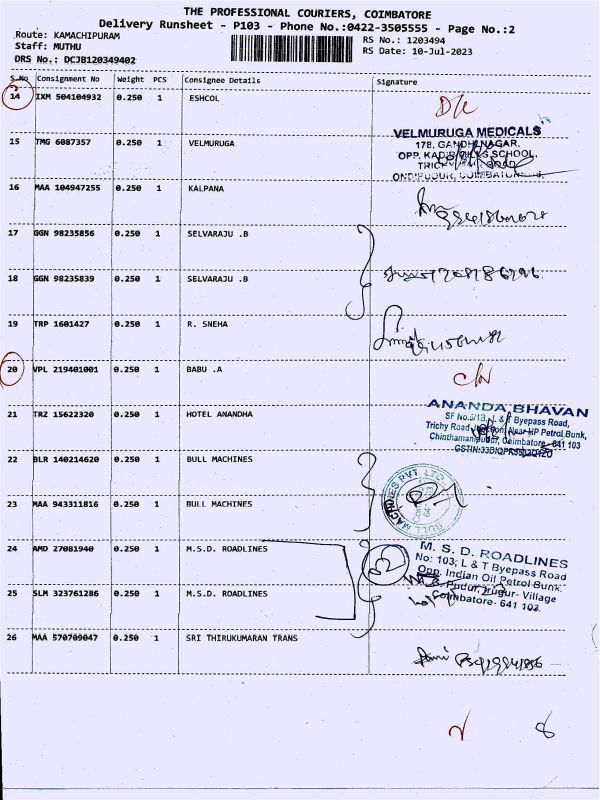 THE PROFESSIONAL COURIERS, COIMBATORE
Delivery Runsheet - P103 - Phone No.:0422-3505555 - Page No.:2
Route: KAMACHIPURAM
Staff: MUTHU
DRS No.: DCJB120349402
RS No.: 1203494
RS Date: 10-Jul-2023
S.No Consignment No Weight PCS Consignee Details Signature
14 IXM 504104932 0.250 1 ESHCOL
15 TMG 6087357 0.250 1 VELMURUGA
VELMURUGA MEDICALS
178, GANDHI NAGAR,
OPP. SCHOOL,
16 MAA 104947255 0.250 1 KALPANA
17 GGN 98235856 0.250 1 SELVARAJU .B
18 GGN 98235839 0.250 1 SELVARAJU .B
19 TRP 1601427 0.250 1 R. SNEHA
20 VPL 219401001 0.250 1 BABU .A
21 TRZ 15622320 0.250 1 HOTEL ANANDHA
ANANDA BHAVAN
SF No. L & T Byepass Road,
Trichy Road Near HP Petrol Bunk,
Coimbatore- 641 103
22 BLR 140214620 0.250 1 BULL MACHINES
23 MAA 943311816 0.250 1 BULL MACHINES
BULL MACHINES PVT. LTD.
24 AMD 27081940 0.250 1 M.S.D. ROADLINES
25 SLM 323761286 0.250 1 M.S.D. ROADLINES
M. S. D. ROADLINES
No: 103, L & T Byepass Road
Opp. Indian Oil Petrol Bunk.
Pudur, Irugur- Village
Coimbatore- 641 103.
26 MAA 570709047 0.250 1 SRI THIRUKUMARAN TRANS
8